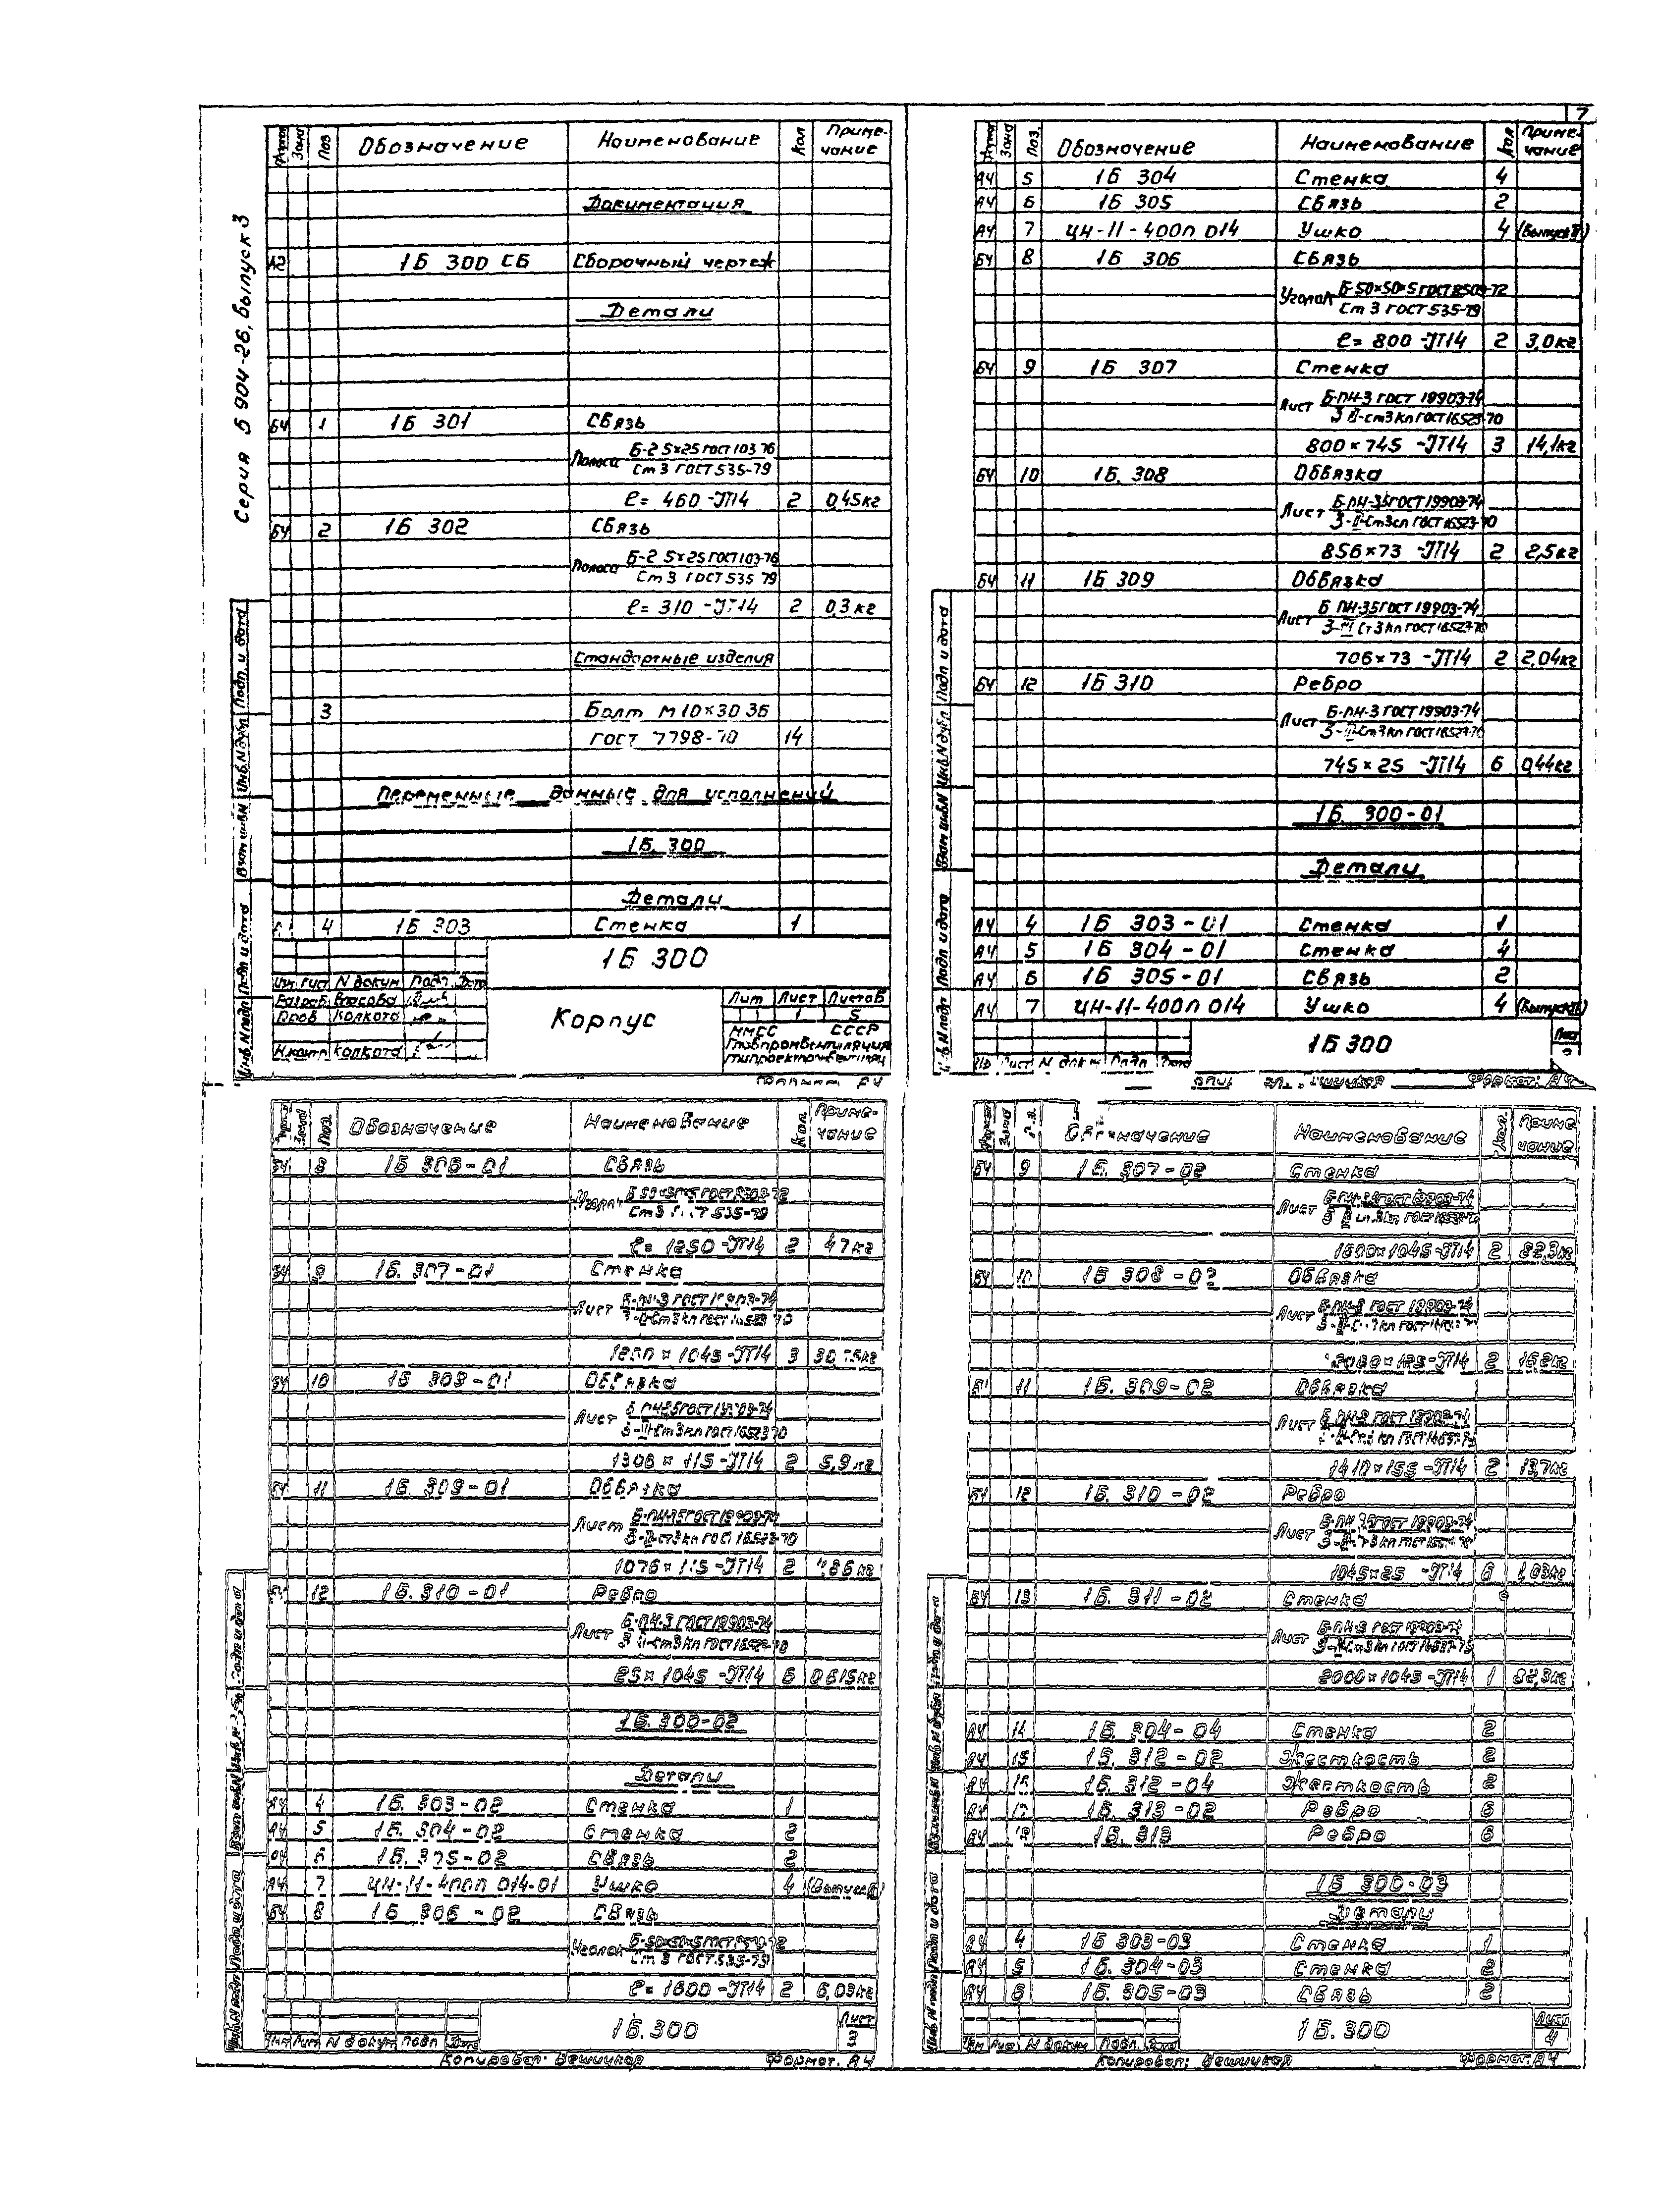 7
Серия 5 904-26, выпуск 3
Зона Поз Обозначение Наименование Кол Приме-чание
Документация
А2 1Б 300 СБ Сборочный чертеж
Детали
БЧ 1 1Б 301 Связь
Полоса Б-2 5×25 ГОСТ 103 76
Ст 3 ГОСТ 535-79
ℓ= 460 -JT14 2 0,45кг
БЧ 2 1Б 302 Связь
Полоса Б-2 5×25 ГОСТ 103-76
Ст 3 ГОСТ 535 79
ℓ= 310 -JT14 2 0,3 кг
Стандартные изделия
3 Болт М 10×30 36
ГОСТ 7798-70 14
Переменные данные для исполнений
1Б. 300
Детали
4 1Б 303 Стенка 1
1Б 300
Изм Лист N докум Подп Дата
Разраб Власова
Пров Колкота
Н.контр Колкота
Корпус
Лит Лист Листов
1 5
ММСС СССР
Главпромвентиляция
Формат А4
Взам инв.N Инв.N дубл Подп. и дата
Инв.N подл Подп и дата
Зона Поз. Обозначение Наименование Кол Приме-чание
А4 5 1Б 304 Стенка 4
А4 6 1Б 305 Связь 2
А4 7 ЦН-11-400п 014 Ушко 4 (Выпуск II)
БЧ 8 1Б 306 Связь
Уголок Б-50×50×5 ГОСТ 8509-72
Ст 3 ГОСТ 535-79
ℓ= 800 -JT14 2 3,0кг
БЧ 9 1Б 307 Стенка
Лист Б-ПН-3 ГОСТ 19903-74
3 II-ст3 кп ГОСТ 16523-70
800×745 -JT14 3 14,1кг
БЧ 10 1Б. 308 Обвязка
Лист Б-ПН-3,5 ГОСТ 19903-74
3-II-Ст3сп ГОСТ 16523-70
856×73 -JT14 2 2,5кг
БЧ 11 1Б 309 Обвязка
Лист Б ПН-3,5 ГОСТ 19903-74
3-II Ст3кп ГОСТ 16523-70
706×73 -JT14 2 2,04кг
БЧ 12 1Б 310 Ребро
Лист Б-ПН-3 ГОСТ 19903-74
3-II-Ст3кп ГОСТ 16523-70
745×25 -JT14 6 0,44кг
1Б. 300-01
Детали
А4 4 1Б 303-01 Стенка 1
А4 5 1Б 304-01 Стенка 4
А4 6 1Б 305-01 Связь 2
А4 7 ЦН-11-400п 014 Ушко 4 (Выпуск II)
1Б 300
Лист
Лист N докум Подп Дата
Формат: А4
Зона Поз. Обозначение Наименование Кол Приме-чание
БЧ 8 1Б 306-01 Связь
Уголок Б 50×50×5 ГОСТ 8509-72
Ст 3 535-79
ℓ= 1250 -JT14 2 4 7 кг
БЧ 9 1Б. 307-01 Стенка
Лист Б-ПН-3 ГОСТ 19903-74
3-II-Ст3кп ГОСТ 16523 70
1250 × 1045 -JT14 3
БЧ 10 1Б 308-01 Обвязка
Лист
3-II-Ст3кп ГОСТ 16523 70
1306 × 115 -JT14 2 5,9 кг
БЧ 11 1Б. 309-01 Обвязка
Лист Б-ПН-3,5 ГОСТ 19903-74
3-II-ст3кп ГОСТ 16523-70
1076 × 115 -JT14 2
БЧ 12 1Б.310-01 Ребро
Лист Б-ПН-3 ГОСТ 19903-74
3 II-Ст3кп ГОСТ 16523-70
25 × 1045 -JT14 6 0 615кг
1Б. 300-02
Детали
А4 4 1Б. 303-02 Стенка 1
А4 5 1Б. 304-02 Стенка 2
А4 6 1Б. 305-02 Связь 2
А4 7 ЦН-11-400п 014-01 Ушко 4 (Выпуск II)
БЧ 8 1Б 306-02 Связь
Уголок Б-50×50×5 ГОСТ 8509-72
Ст 3 ГОСТ 535-79
ℓ= 1600 -JT14 2 6,03кг
1Б.300
Лист
3
Изм Лист N докум Подп Дата
Копировал: Формат. А4
Зона Обозначение Наименование Кол. Приме чание
БЧ 9 1Б. 307-02 Стенка
Лист ГОСТ 19903-74
1600×1045 -JT14 2
БЧ 10 1Б 308-02 Обвязка
Лист Б-ПН-8 ГОСТ 19903-74
×125 -JT14 2 16,2кг
11 1Б. 309-02 Обвязка
Лист Б-ПН-8 ГОСТ 19903-74
1410×155 -JT14 2 13,7кг
БЧ 12 1Б. 310-02 Ребро
Лист ГОСТ 19903-74
1045×25 -JT14 6 1,03кг
БЧ 13 1Б. 311-02 Стенка
Лист Б-ПН-8 ГОСТ 19903-74
2000×1045 -JT14 1
А4 14 1Б. 304-04 Стенка 2
А4 15 1Б. 312-02 Жесткость 2
А4 16 1Б. 312-04 Жесткость 2
А4 17 1Б. 313-02 Ребро 6
А4 18 1Б. 313 Ребро 6
1Б 300-03
Детали
А4 4 1Б 303-03 Стенка 1
А4 5 1Б. 304-03 Стенка 2
А4 6 1Б. 305-03 Связь 2
1Б.300
Лист
4
Изм Лист N докум Подп. Дата
Копировал: Формат. А4